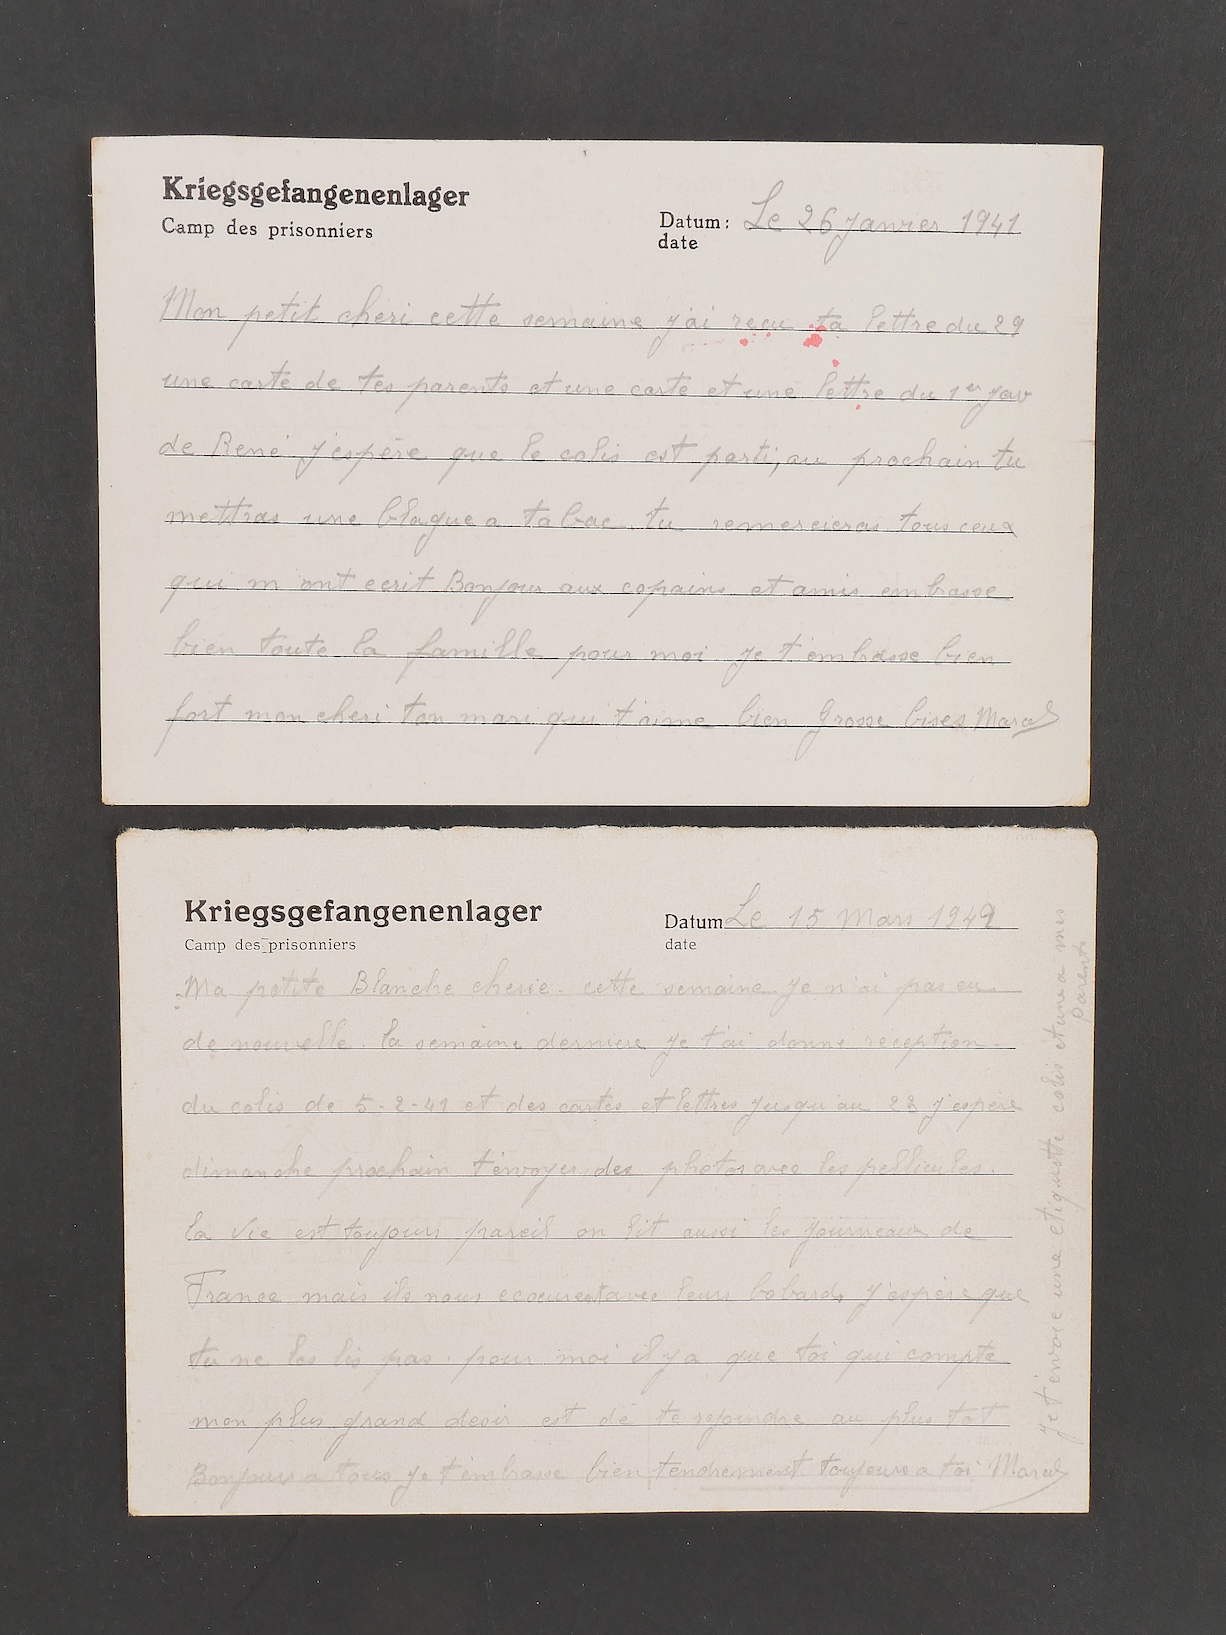 Kriegsgefangenenlager
Camp des prisonniers
Datum: Le 26 Janvier 1941
date
Mon petit cheri cette semaine j'ai reçu ta lettre du 29
une carte de tes parents et une carte et une lettre du 1er Jav
de René j'espère que le colis est parti, au prochain tu
mettras une blague a tabac. tu remercieras tous ceux
qui m'ont ecrit Bonjour aux copains et amis embrasse
bien toute la famille pour moi je t'embrasse bien
fort mon cheri ton mari qui t'aime bien Grosse bises Marcel
Kriegsgefangenenlager
Camp des prisonniers
Datum Le 15 Mars 1942
date
Ma petite Blanche cherie. cette semaine je n'ai pas eu
de nouvelle. la semaine derniere je t'ai donne reception.
du colis de 5-2-41 et des cartes et lettres jusqu'au 23 j'espère
dimanche prochain t'envoyer des photos avec les pellicules.
la vie est toujours pareil on lit aussi les journeaux de
France mais ils nous ecoeurent avec leurs bobards j'espère que
tu ne les lis pas. pour moi il y a que toi qui compte
mon plus grand desir est de te rejoindre au plus tot
Bonjours a tous je t'embrasse bien tendrement toujours a toi Marcel
je t'envoie une etiquette colis et une a mes
parents